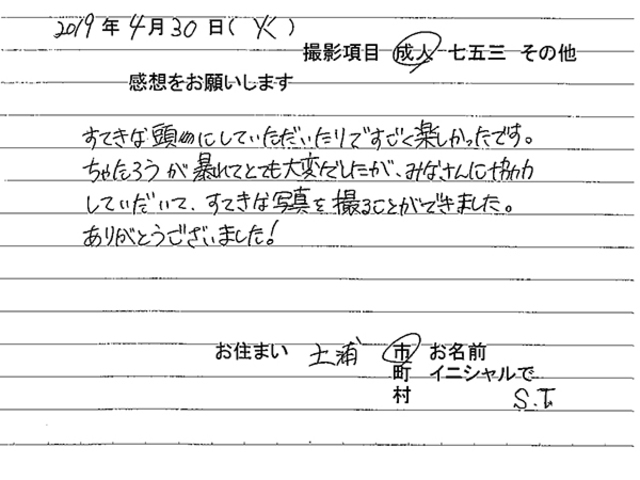 2019年4月30日(火)
撮影項目 成人 七五三 その他
感想をお願いします
すてきな頭にしていただいたりですごく楽しかったです。
ちゃたろうが暴れてとても大変でしたが、みなさんに協力
していだいて、すてきな写真を撮ることができました。
ありがとうございました!
お住まい 土浦 市 お名前
町 イニシャルで
村 S.T